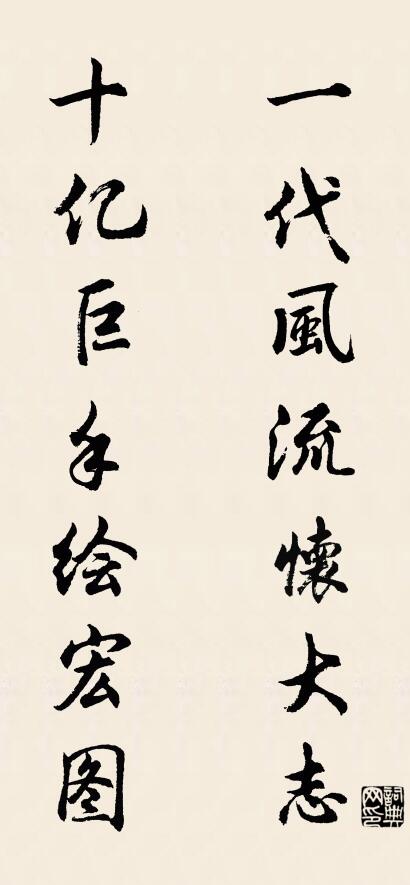 一代風流懷大志
十亿巨手绘宏图
詞典网印